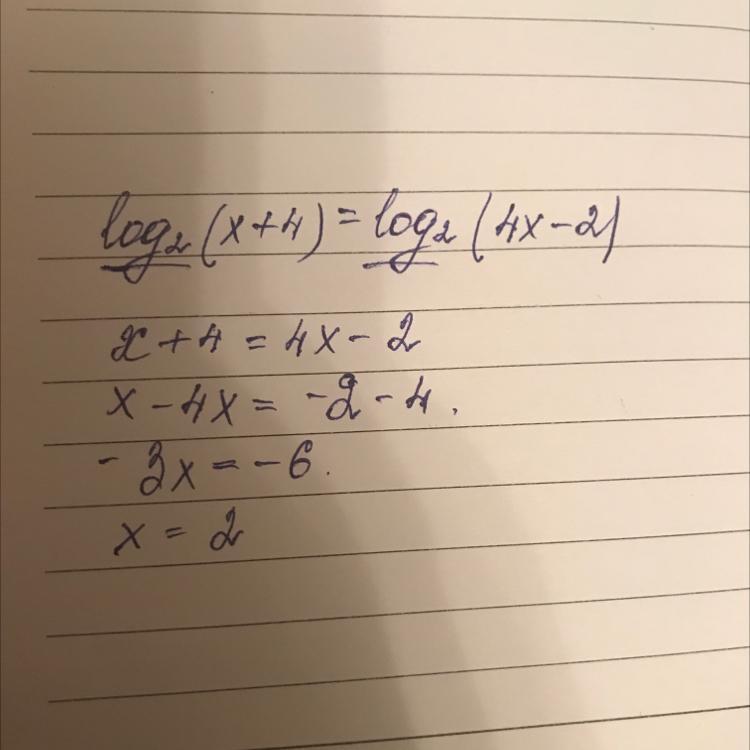 log₂(x+4)=log₂(4x-2)
x+4=4x-2
x-4x=-2-4.
-3x=-6.
x=2